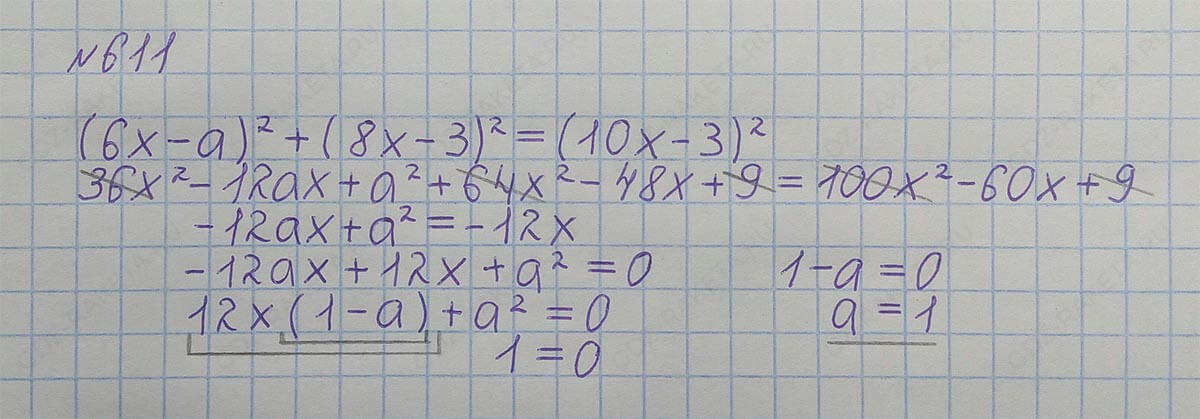 №611
(6x-a)²+(8x-3)²=(10x-3)²
36x²-12ax+a²+64x²-48x+9=100x²-60x+9
-12ax+a²=-12x
-12ax+12x+a²=0 1-a=0
12x(1-a)+a²=0 a=1
1=0